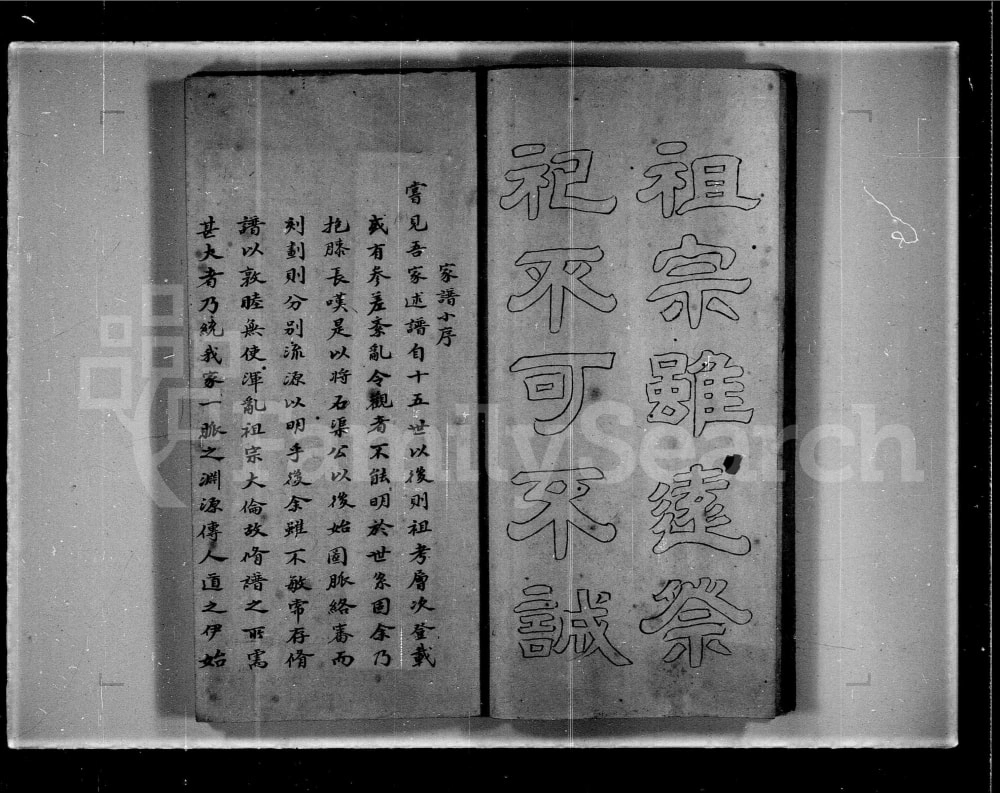 祖宗雖遠祭
祀不可不誠
家譜小序
嘗見吾家述譜自十五世以後則祖考層次登載
或有參差紊亂令觀者不能明於世系固余乃
抱膝長嘆是以將石渠公以後始圖脈絡審而
刻劃則分别流源以明乎後余雖不敏常存脩
譜以敦睦無使渾亂祖宗大倫故脩譜之所需
甚大者乃統我家一脈之淵源傳人道之伊始
FamilySearch